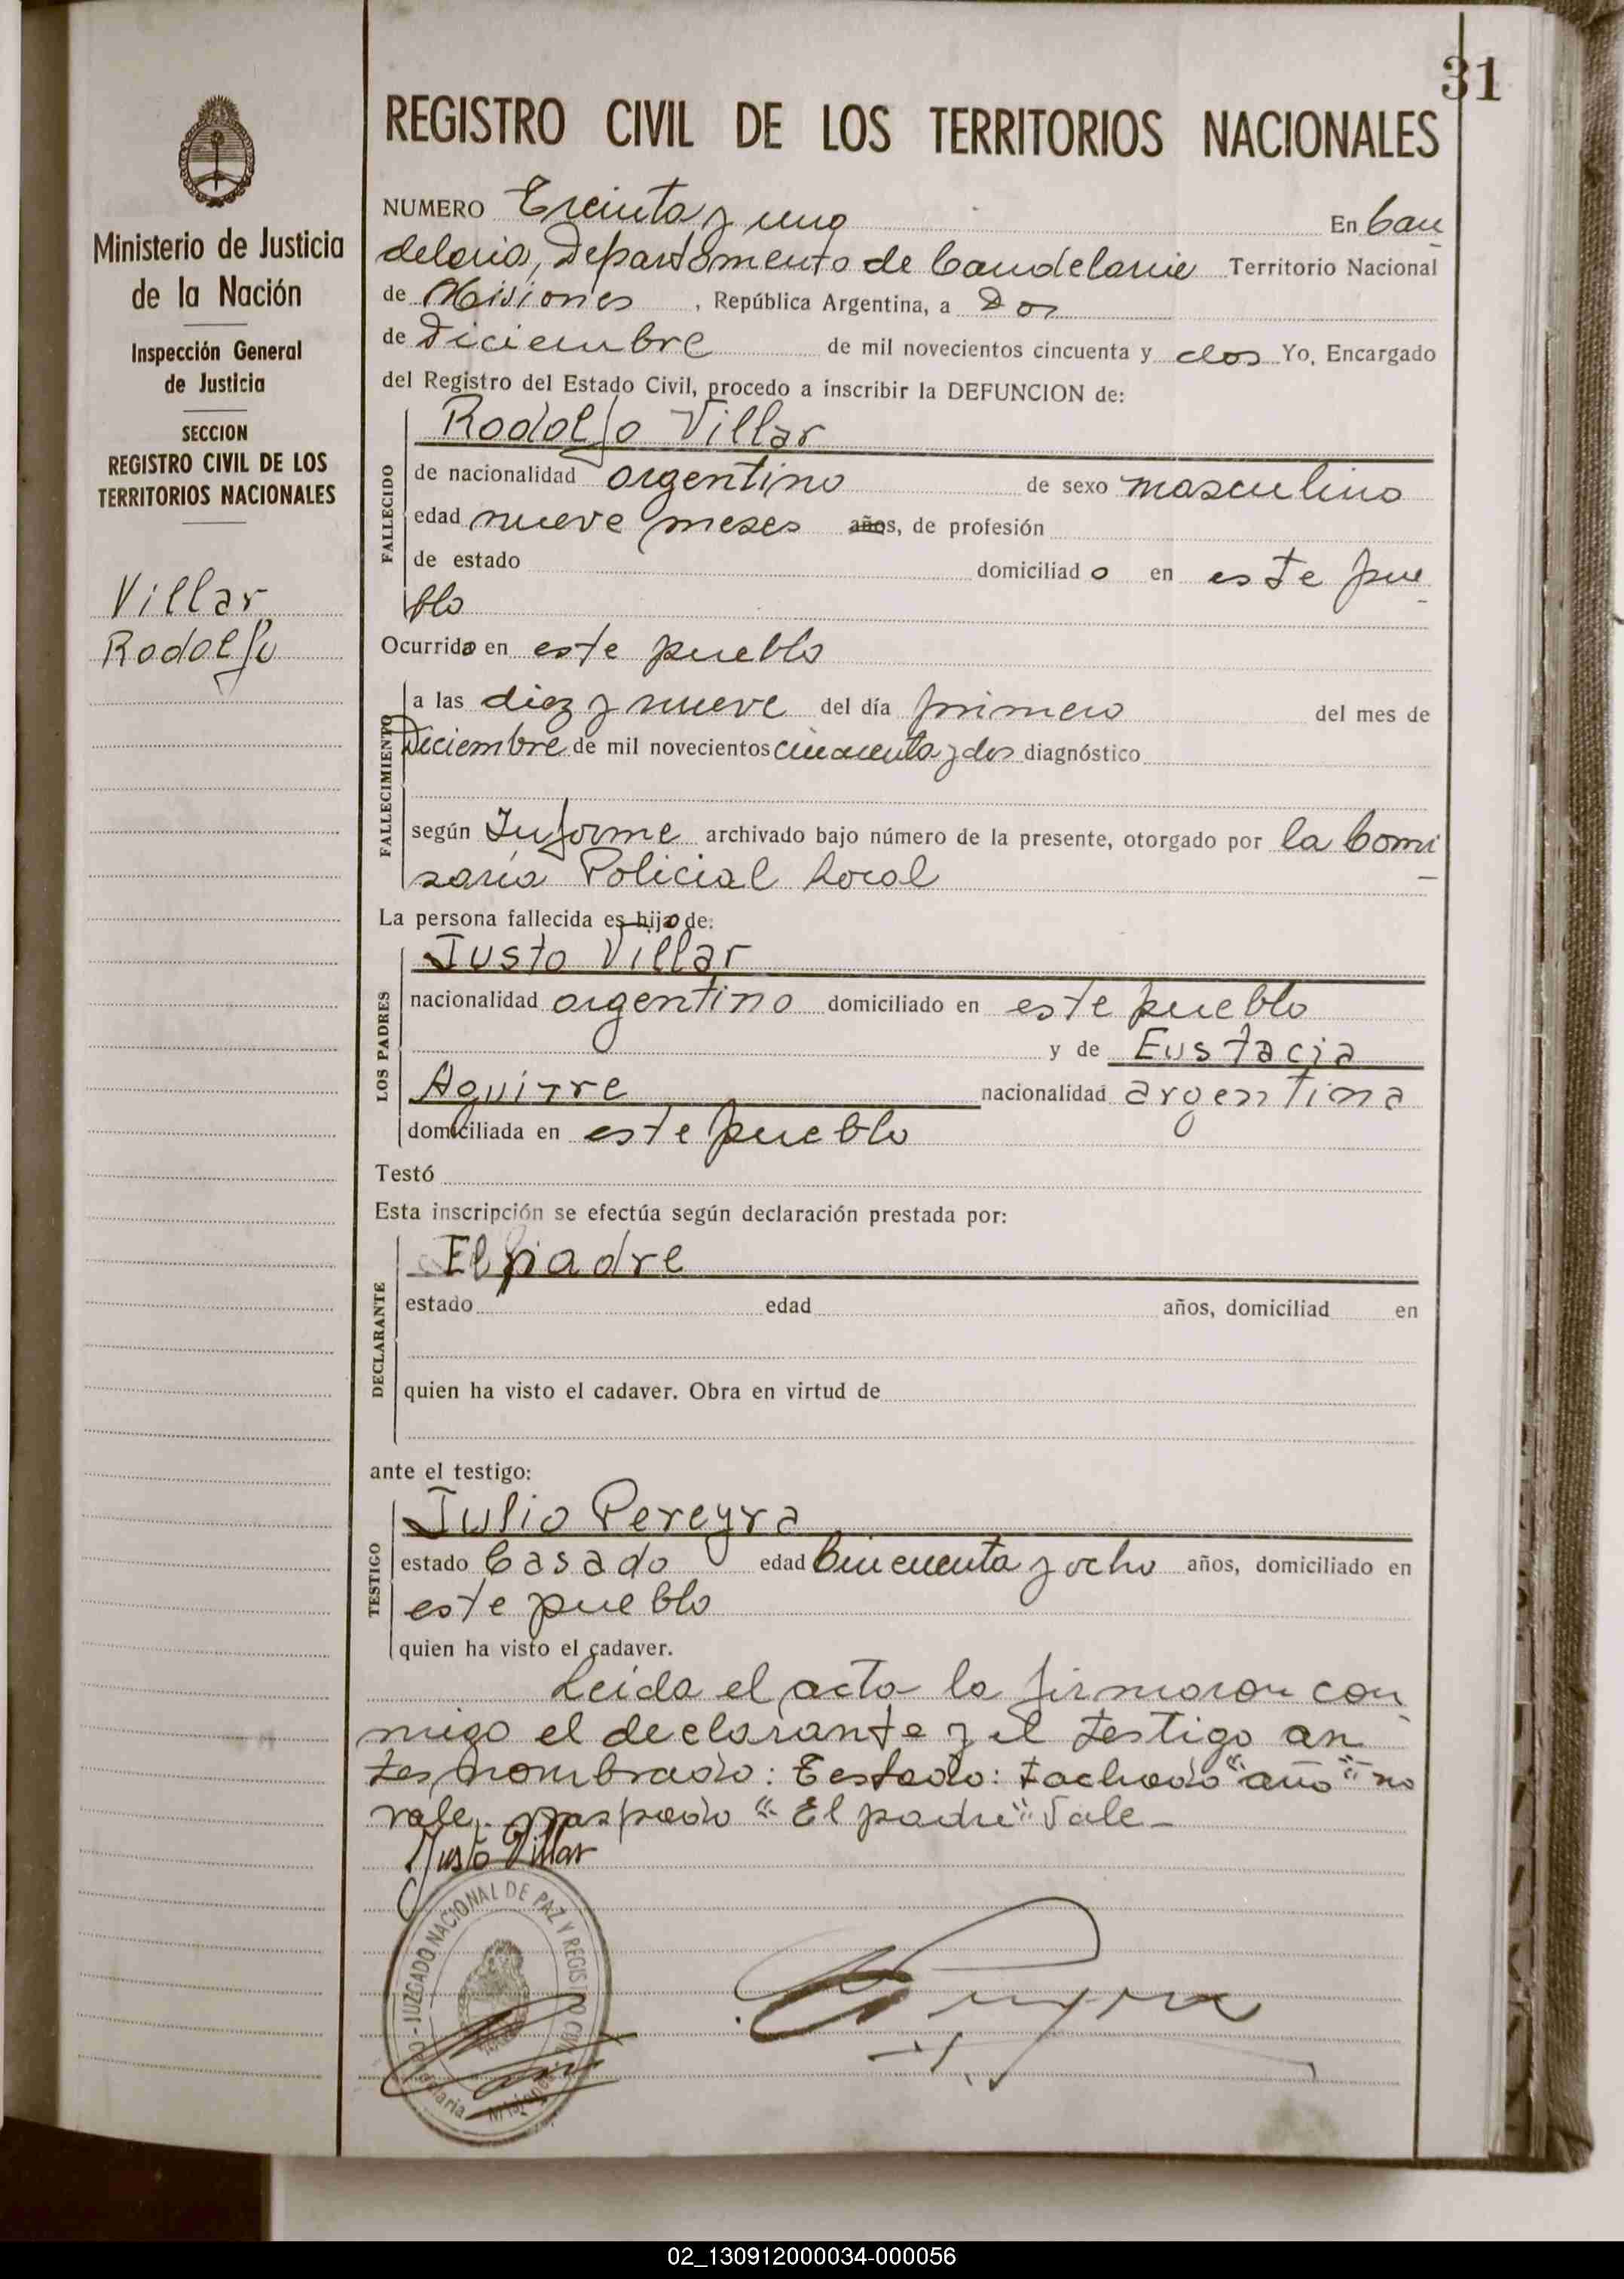 31
REGISTRO CIVIL DE LOS TERRITORIOS NACIONALES
Ministerio de Justicia
de la Nación
Inspección General
de Justicia
SECCION
REGISTRO CIVIL DE LOS
TERRITORIOS NACIONALES
Villar
Rodolfo
NUMERO Treinta y uno En Can
delaria, Departamento de Candelaria Territorio Nacional
de Misiones, República Argentina, a Dos
de Diciembre de mil novecientos cincuenta y dos Yo, Encargado
del Registro del Estado Civil, procedo a inscribir la DEFUNCION de:
FALLECIDO
Rodolfo Villar
de nacionalidad argentino de sexo masculino
edad nueve meses años, de profesión
de estado domiciliado en este pue
blo
Ocurrido en este pueblo
FALLECIMIENTO
a las diez y nueve del día primero del mes de
Diciembre de mil novecientos cincuenta y dos diagnóstico
según Informe archivado bajo número de la presente, otorgado por la Comi
saría Policial Local
La persona fallecida es hijo de:
LOS PADRES
Justo Villar
nacionalidad argentino domiciliado en este pueblo
y de Eustacia
Aguirre nacionalidad argentina
domiciliada en este pueblo
Testó
Esta inscripción se efectúa según declaración prestada por:
DECLARANTE
El padre
estado edad años, domiciliad en
quien ha visto el cadaver. Obra en virtud de
ante el testigo:
TESTIGO
Julio Pereyra
estado Casado edad Cincuenta y ocho años, domiciliado en
este pueblo
quien ha visto el cadaver.
Leida el acta la firmaron con
migo el declarante y el testigo an
tes nombrado: Testado: tachado "año" no
vale. raspado "El padre" Vale-
Justo Villar
JUZGADO NACIONAL DE PAZ Y REGISTRO CIVIL
Misiones
02_130912000034-000056